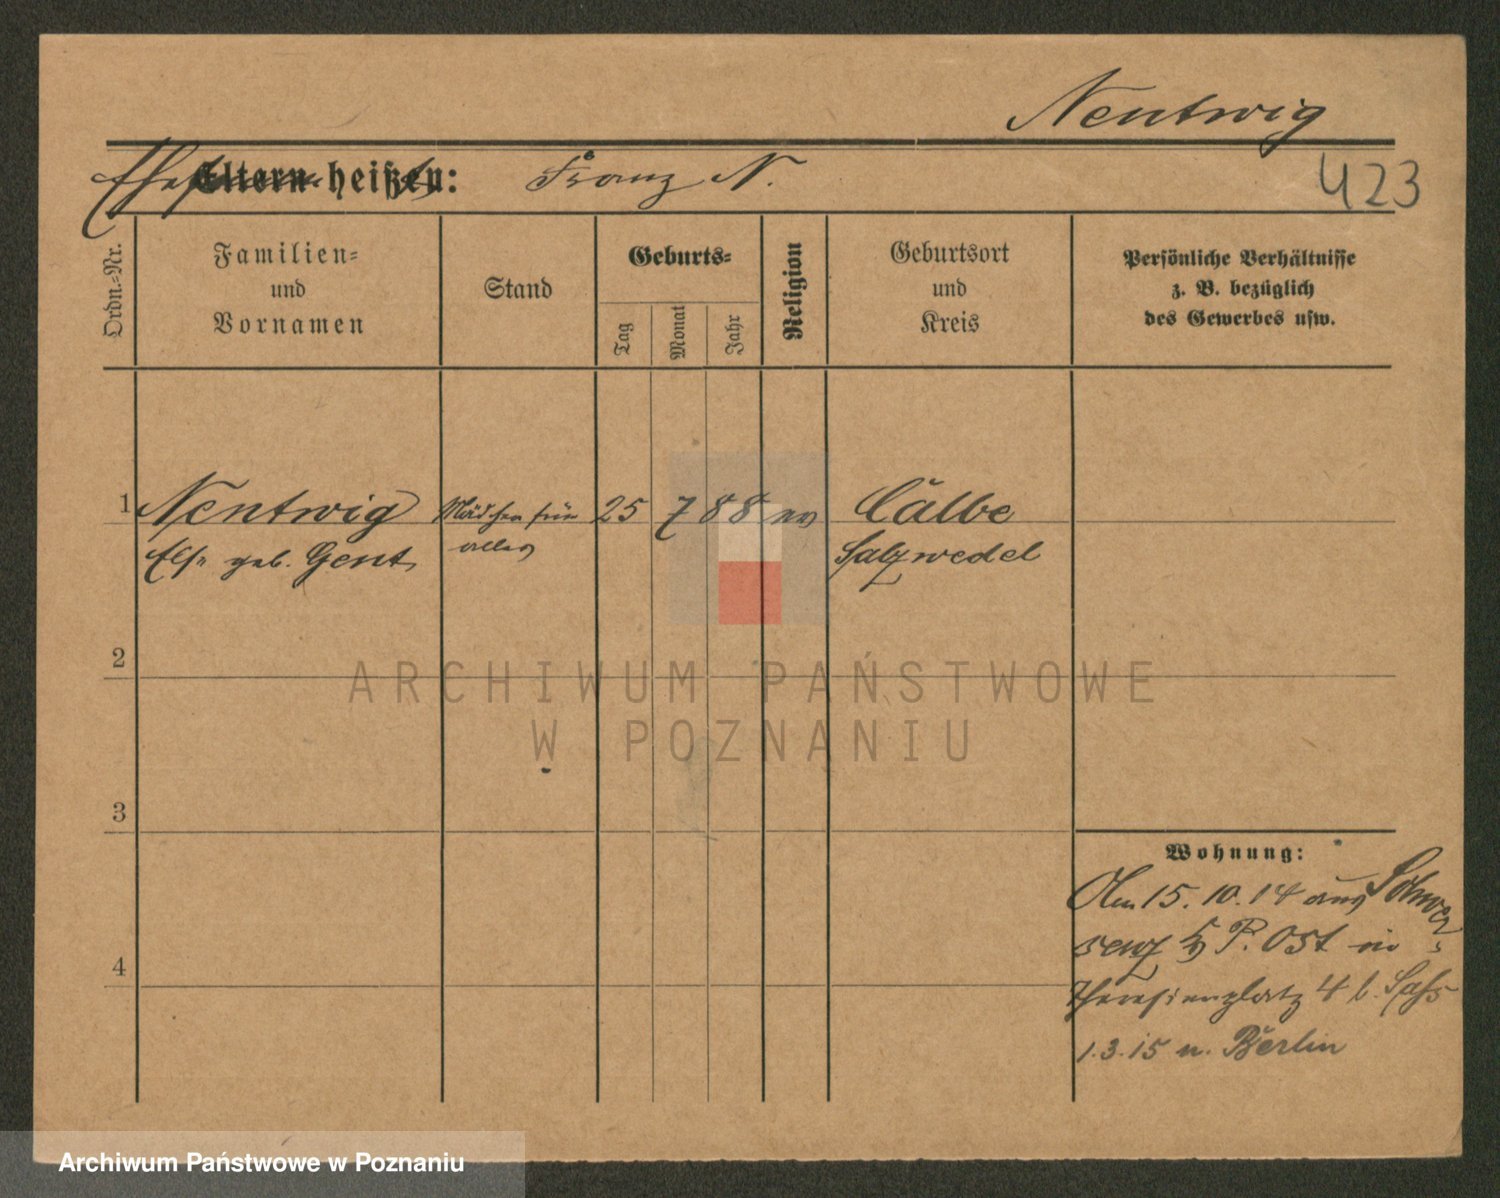 Nentwig
Eltern heißen: Franz N.
423
Ordn.-Nr.
Familien-
und
Vornamen
Stand
Geburts-
Tag
Monat
Jahr
Religion
Geburtsort
und
Kreis
Persönliche Verhältnisse
z. B. bezüglich
des Gewerbes usw.
1 Nentwig Mädchen für 25 7 88 ev Calbe
Else geb. Gent alles Salzwedel
2
ARCHIWUM PAŃSTWOWE
W POZNANIU
3
Wohnung:
Am 15. 10. 14 aus
P. Ost in
4
Theresienplatz 4 b. Sass
1. 3. 15 n. Berlin
Archiwum Państwowe w Poznaniu